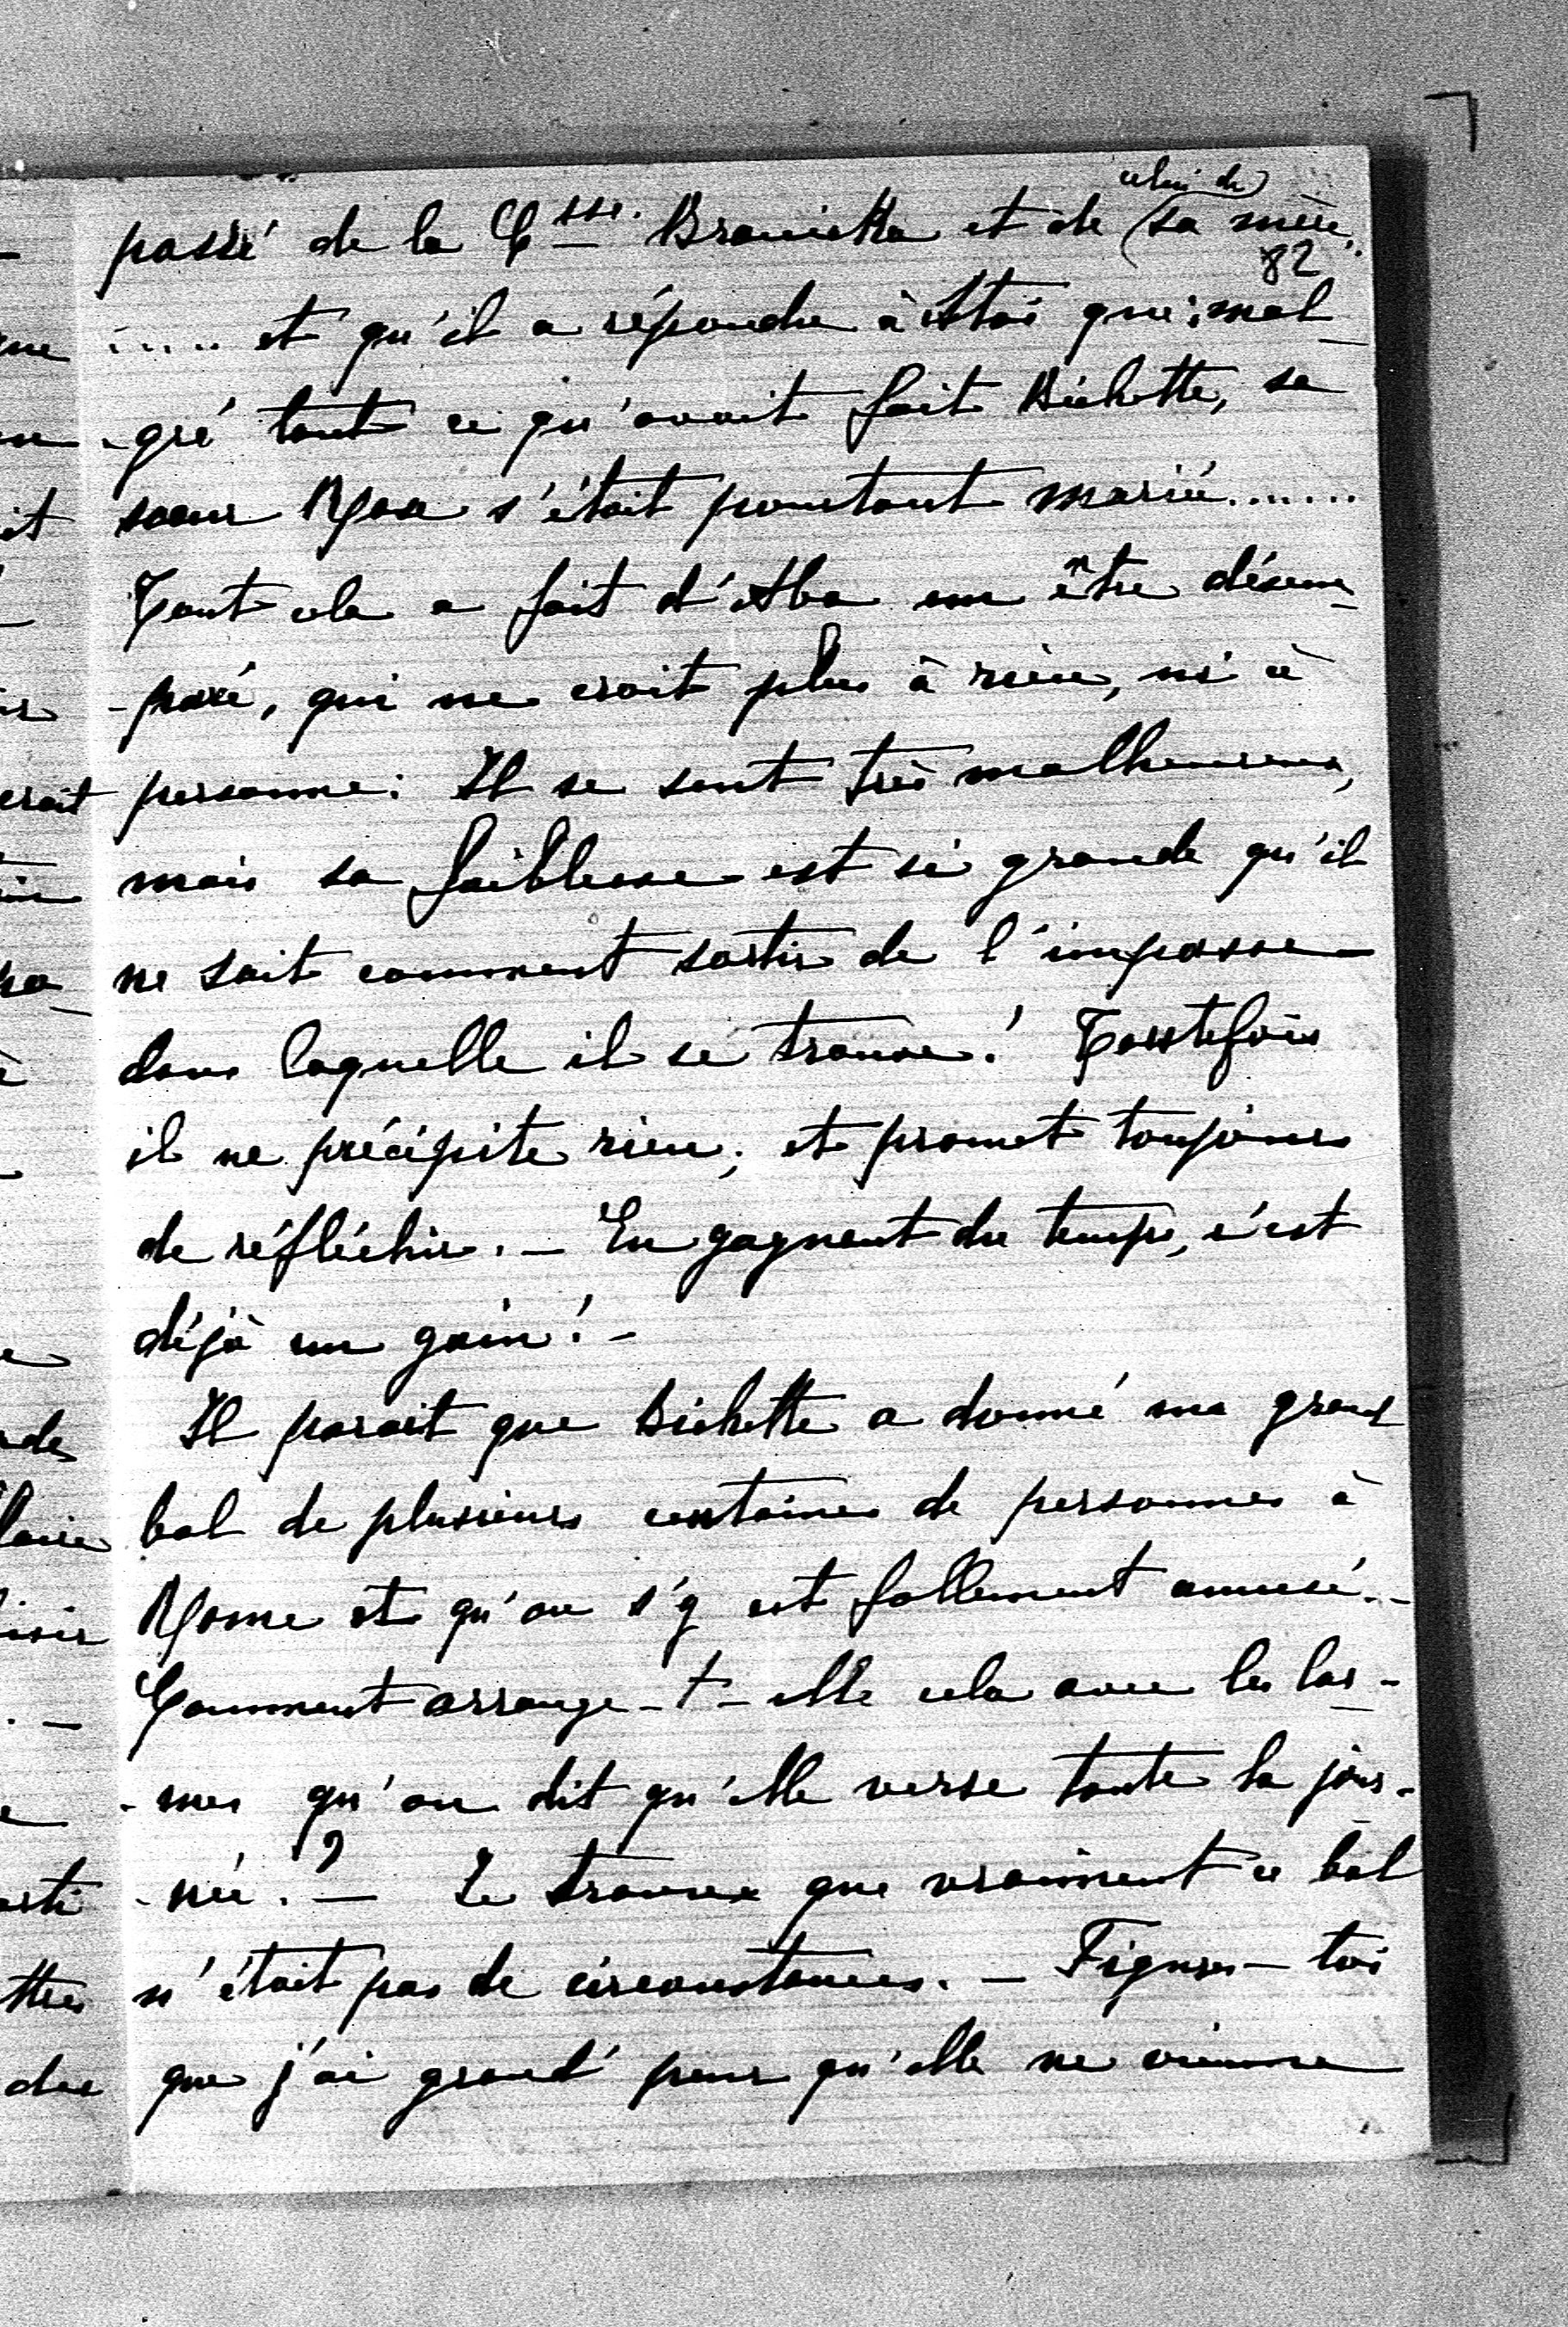 celui de
passé de la Csse. Branicka et de sa mère,
82
..... et qu'il a répondu à Stas que : mal-
-gré tout ce qu'avait fait Bichette, sa
soeur Rosa s'était pourtant mariée......
Tout cela a fait d'Aba un être désem-
-paré, qui ne croit plus à rien, ni à
personne. Il se sent très malheureux,
mais sa faiblesse est si grande qu'il
ne sait comment sortir de l'impasse
dans laquelle il se trouve! Toutefois
il ne précipite rien, et promet toujours
de réfléchir. – En gagnant du temps, c'est
déjà un gain! –
Il parait que Bichette a donné un grand
bal de plusieurs centaines de personnes à
Rome et qu'on s'y est follement amusé. –
Comment arrange-t-elle cela avec les lar-
-mes qu'on dit qu'elle verse toute la jour-
-née? – Je trouve que vraiment ce bal
n'était pas de circonstances. – Figures-toi
que j'ai grand' peur qu'elle ne vienne